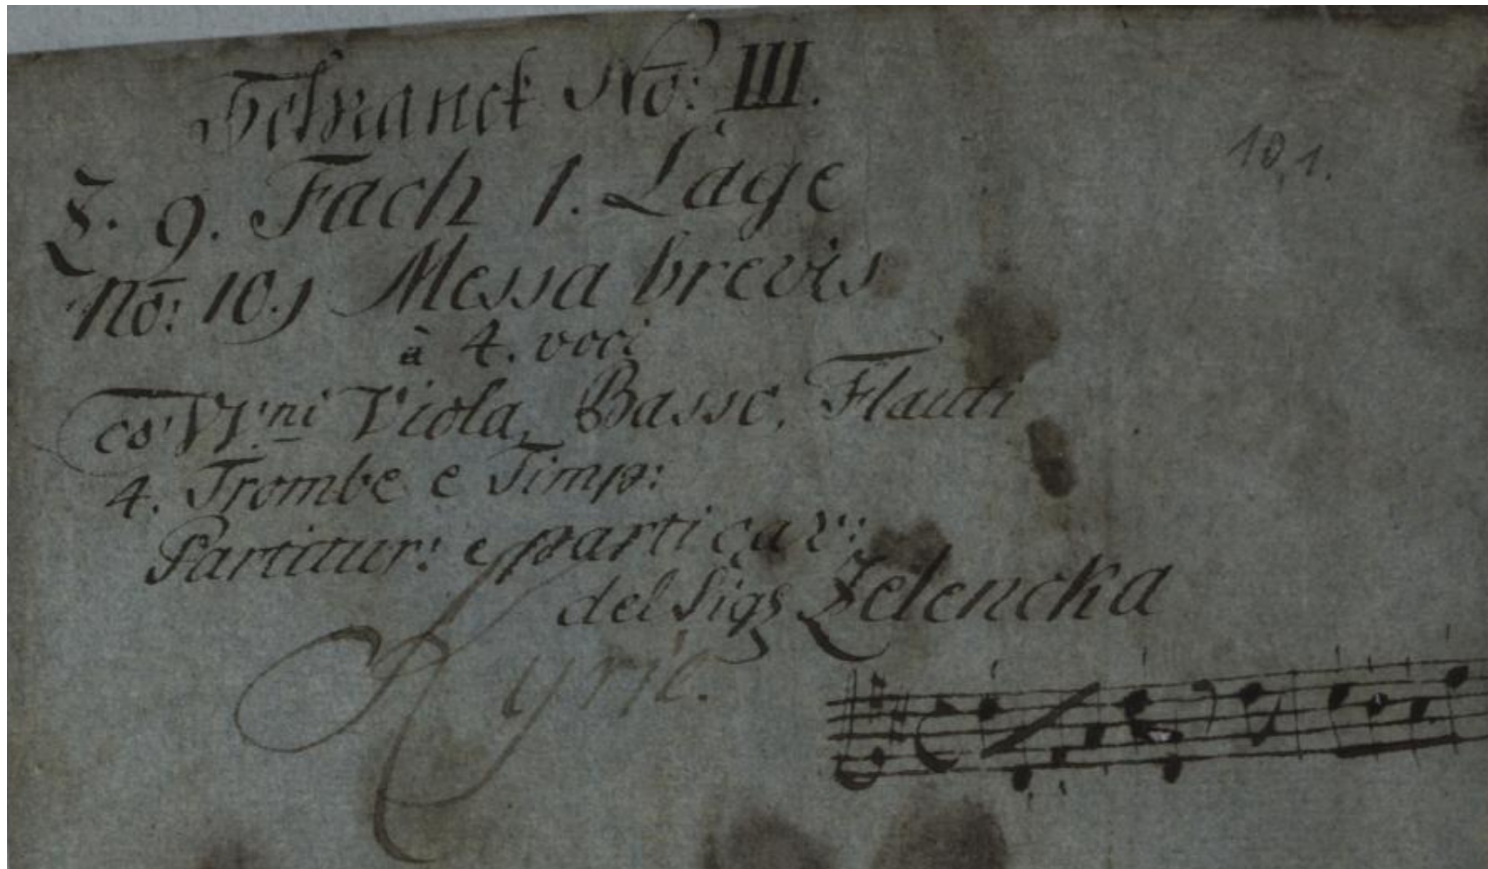 Schranck No: III.
10,1.
Z. 9. Fach 1. Lage
No: 10.) Messa brevis
à 4. voci
co' VV.ni Viola, Basso, Flauti
4. Trombe e Timp:
Partitur: e parti cav:
del Sigr Zelencka
Kyrie.